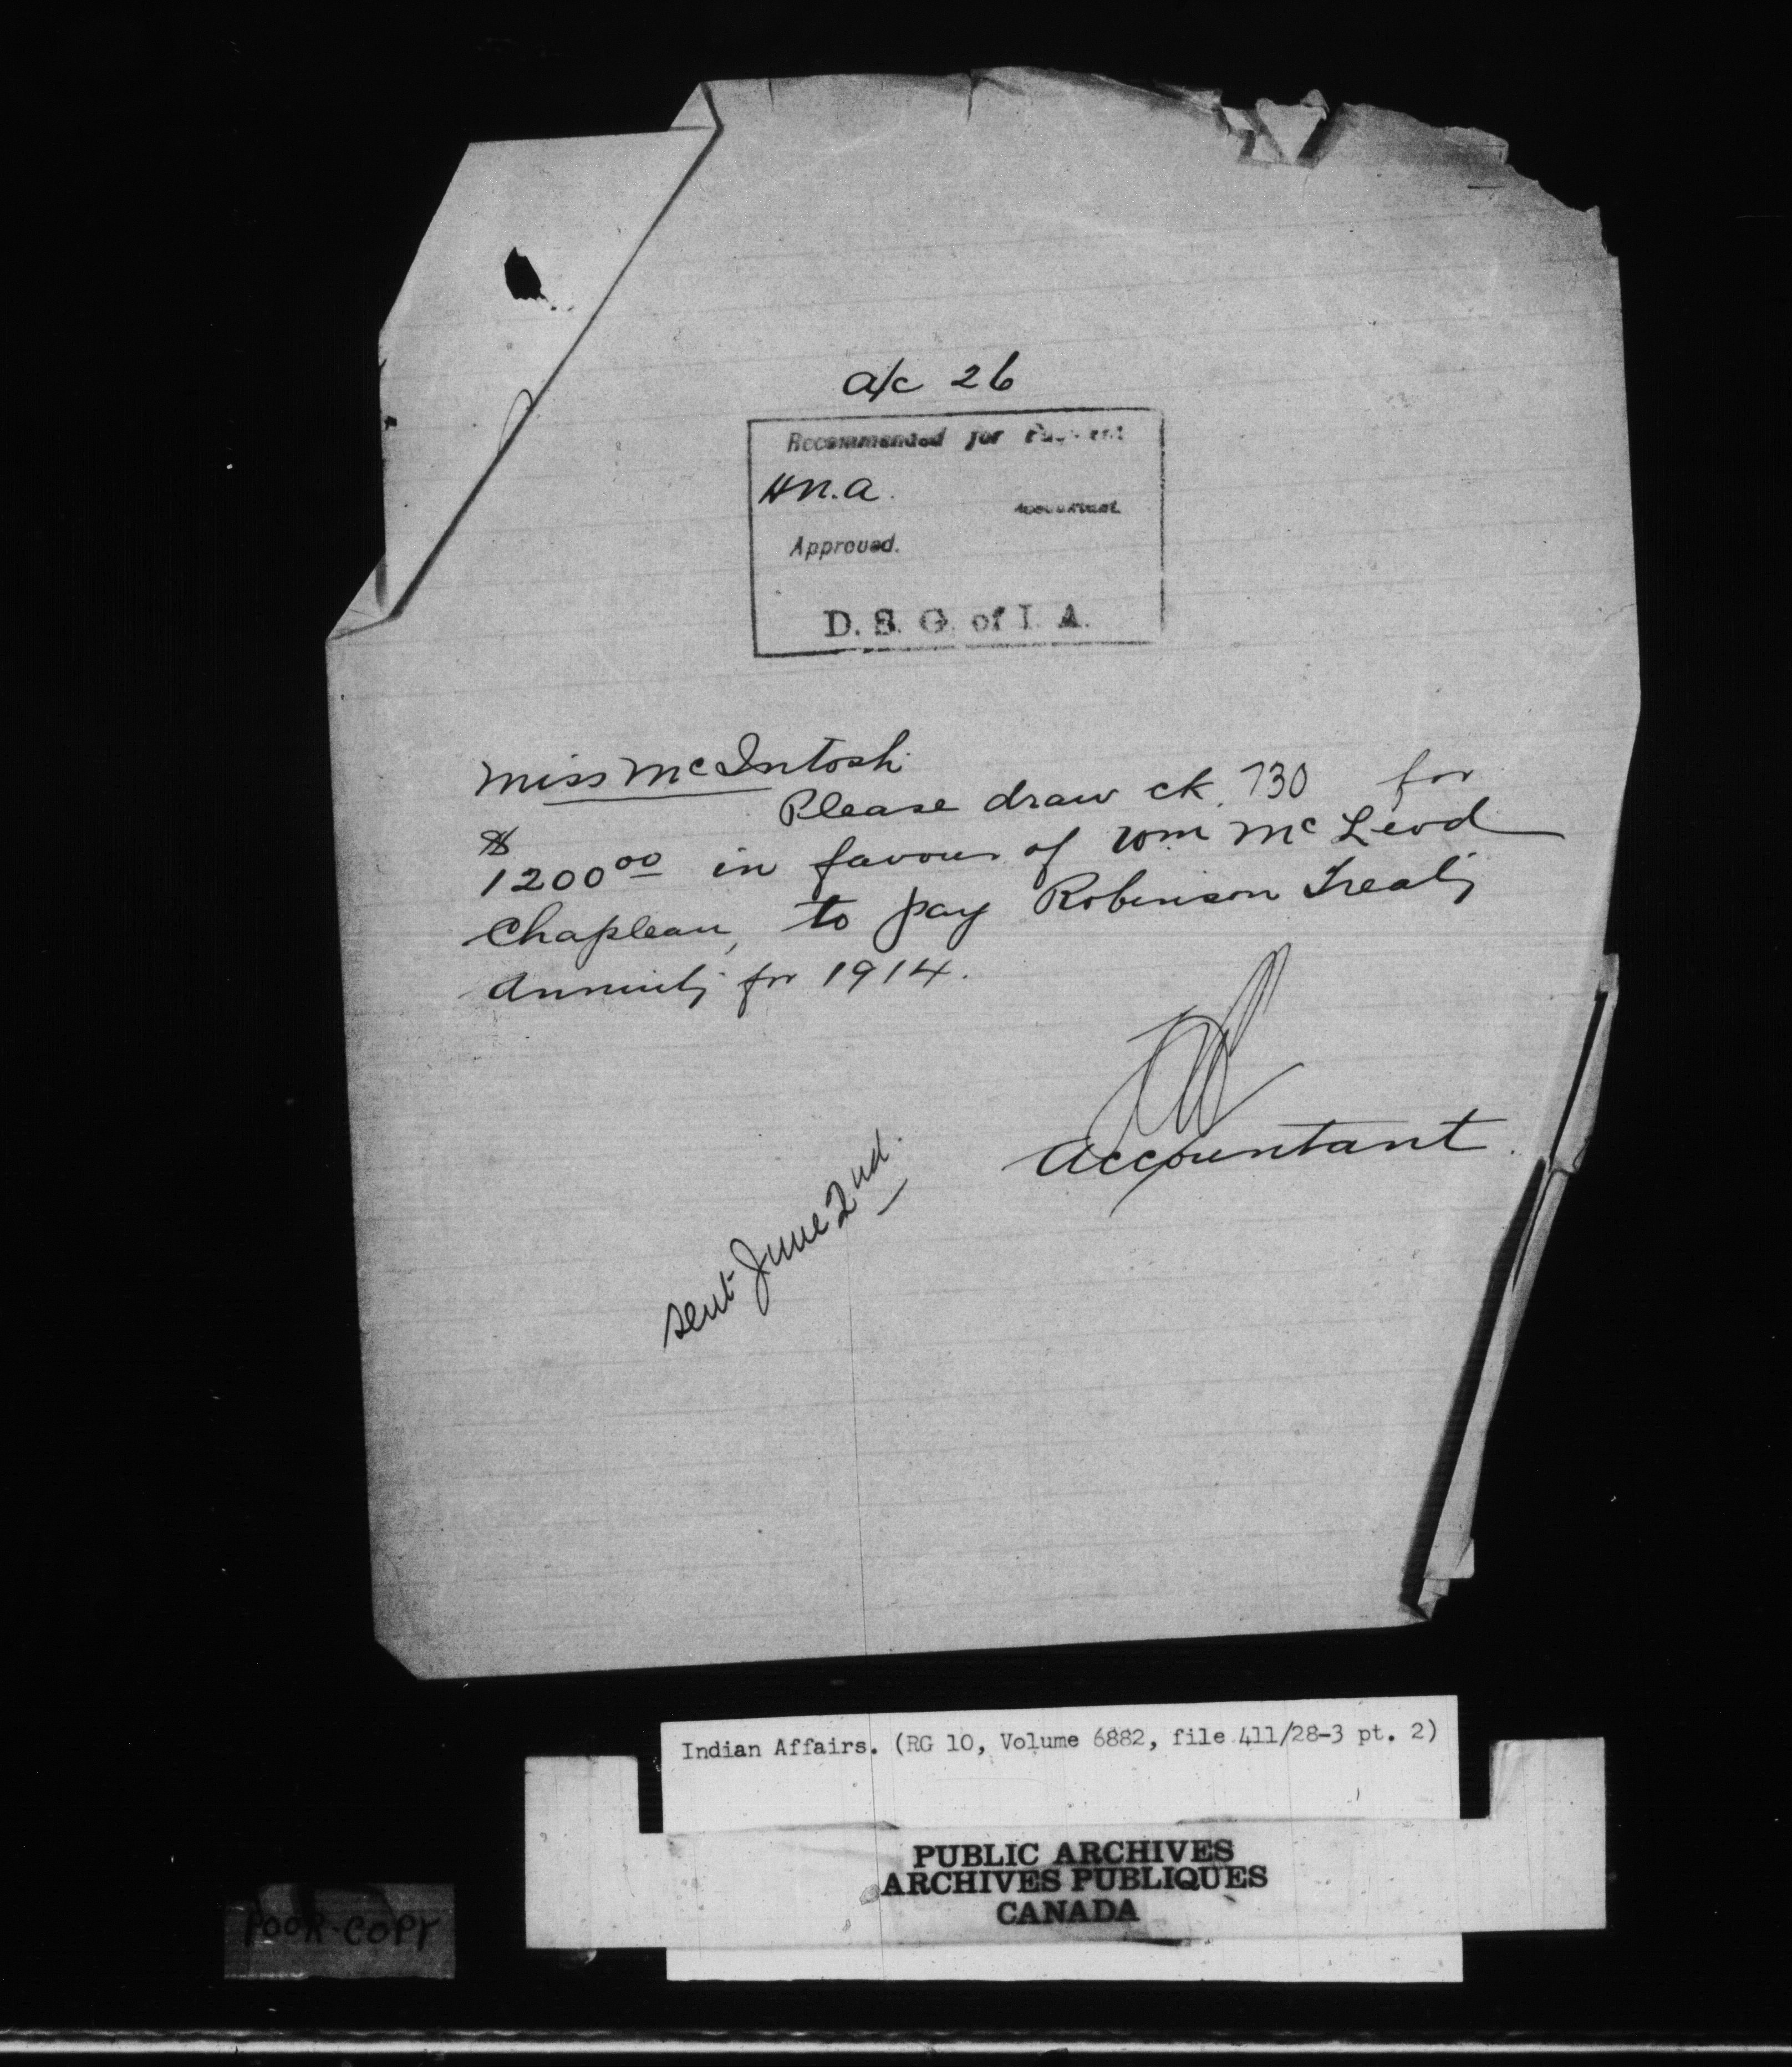 a/c 26
Recommended for Payment
H.N.A.
Accountant.
Approved.
D. S. G. of I. A.
Miss McIntosh
Please draw ck. 730 for
$1200 00 in favour of Wm McLeod
Chapleau, to pay Robinson Treaty
Annuity for 1914.
Accountant.
sent June 2nd.
Indian Affairs. (RG 10, Volume 6882, file 411/28-3 pt. 2)
PUBLIC ARCHIVES
ARCHIVES PUBLIQUES
CANADA
POOR-COPY